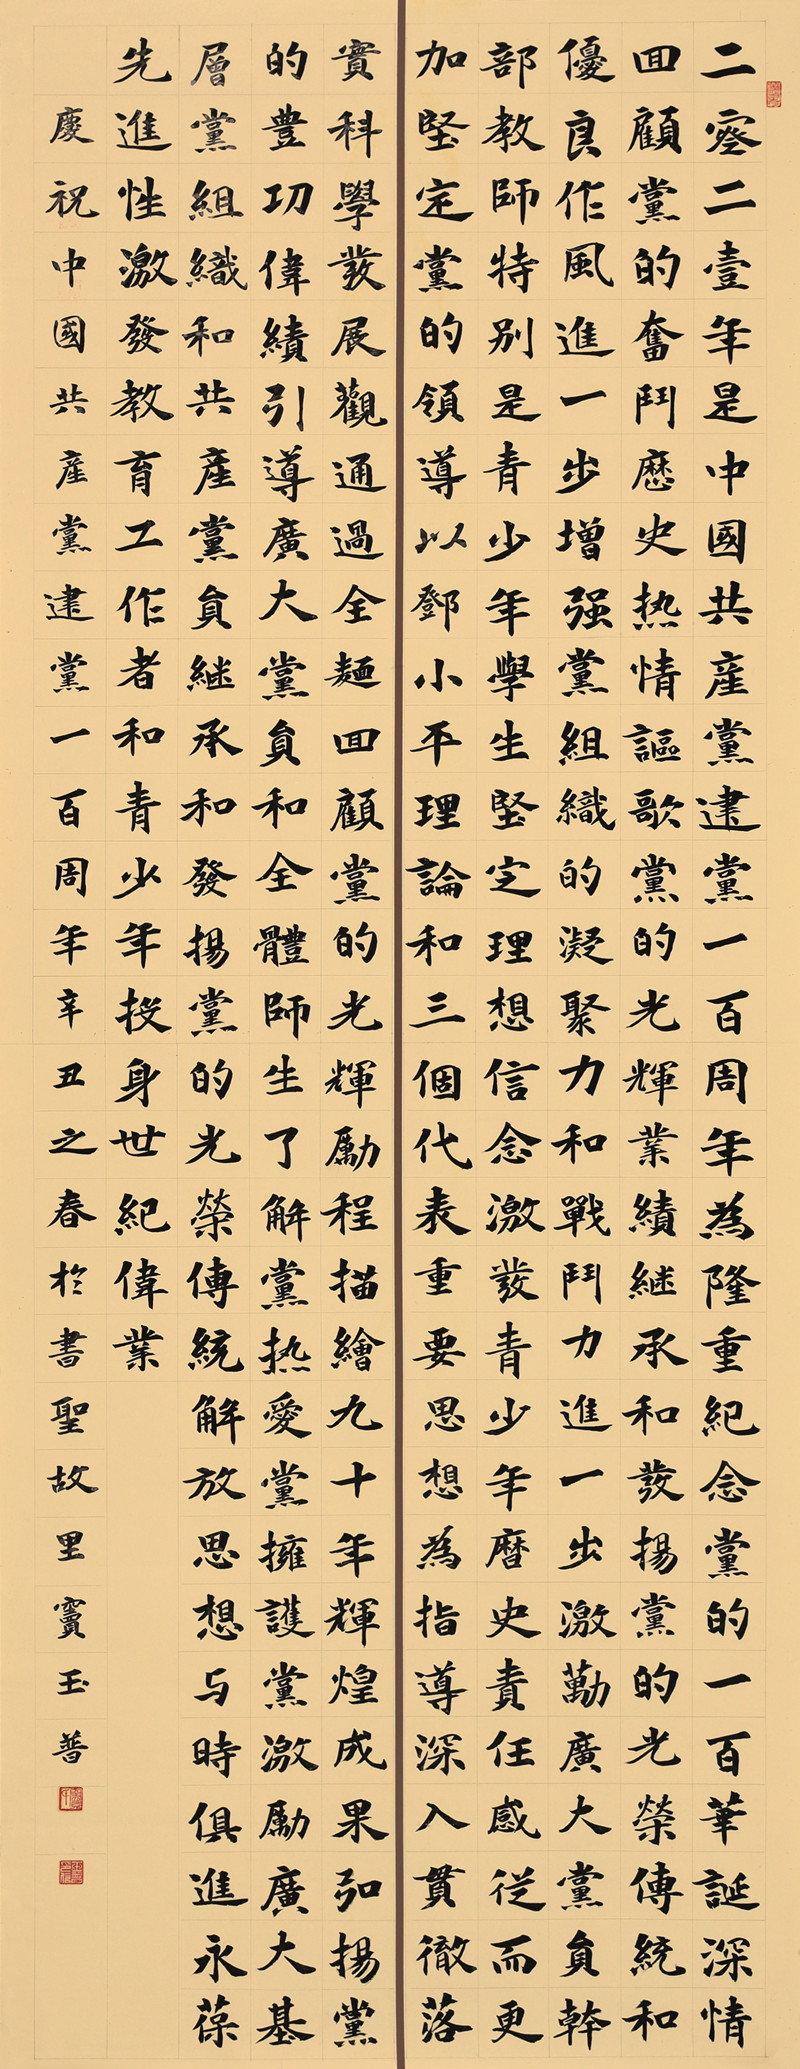 二零二壹年是中國共産黨建黨一百周年為隆重紀念黨的一百華誕深情
回顧黨的奮鬥歷史热情謳歌黨的光輝業績継承和發揚黨的光榮傳統和
優良作風進一步增强黨組織的凝聚力和戰鬥力進一步激勵廣大黨員幹
部教師特别是青少年學生堅定理想信念激發青少年曆史責任感從而更
加堅定黨的領導以鄧小平理論和三個代表重要思想為指導深入貫徹落
實科學發展觀通過全麵回顧黨的光輝勵程描繪九十年輝煌成果弘揚黨
的豐功偉績引導廣大黨員和全體師生了解黨热愛黨擁護黨激勵廣大基
層黨組織和共産黨員継承和發揚黨的光榮傳統解放思想与時俱進永葆
先進性激發教育工作者和青少年投身世紀偉業
慶祝中國共産黨建黨一百周年辛丑之春於書聖故里竇玉普